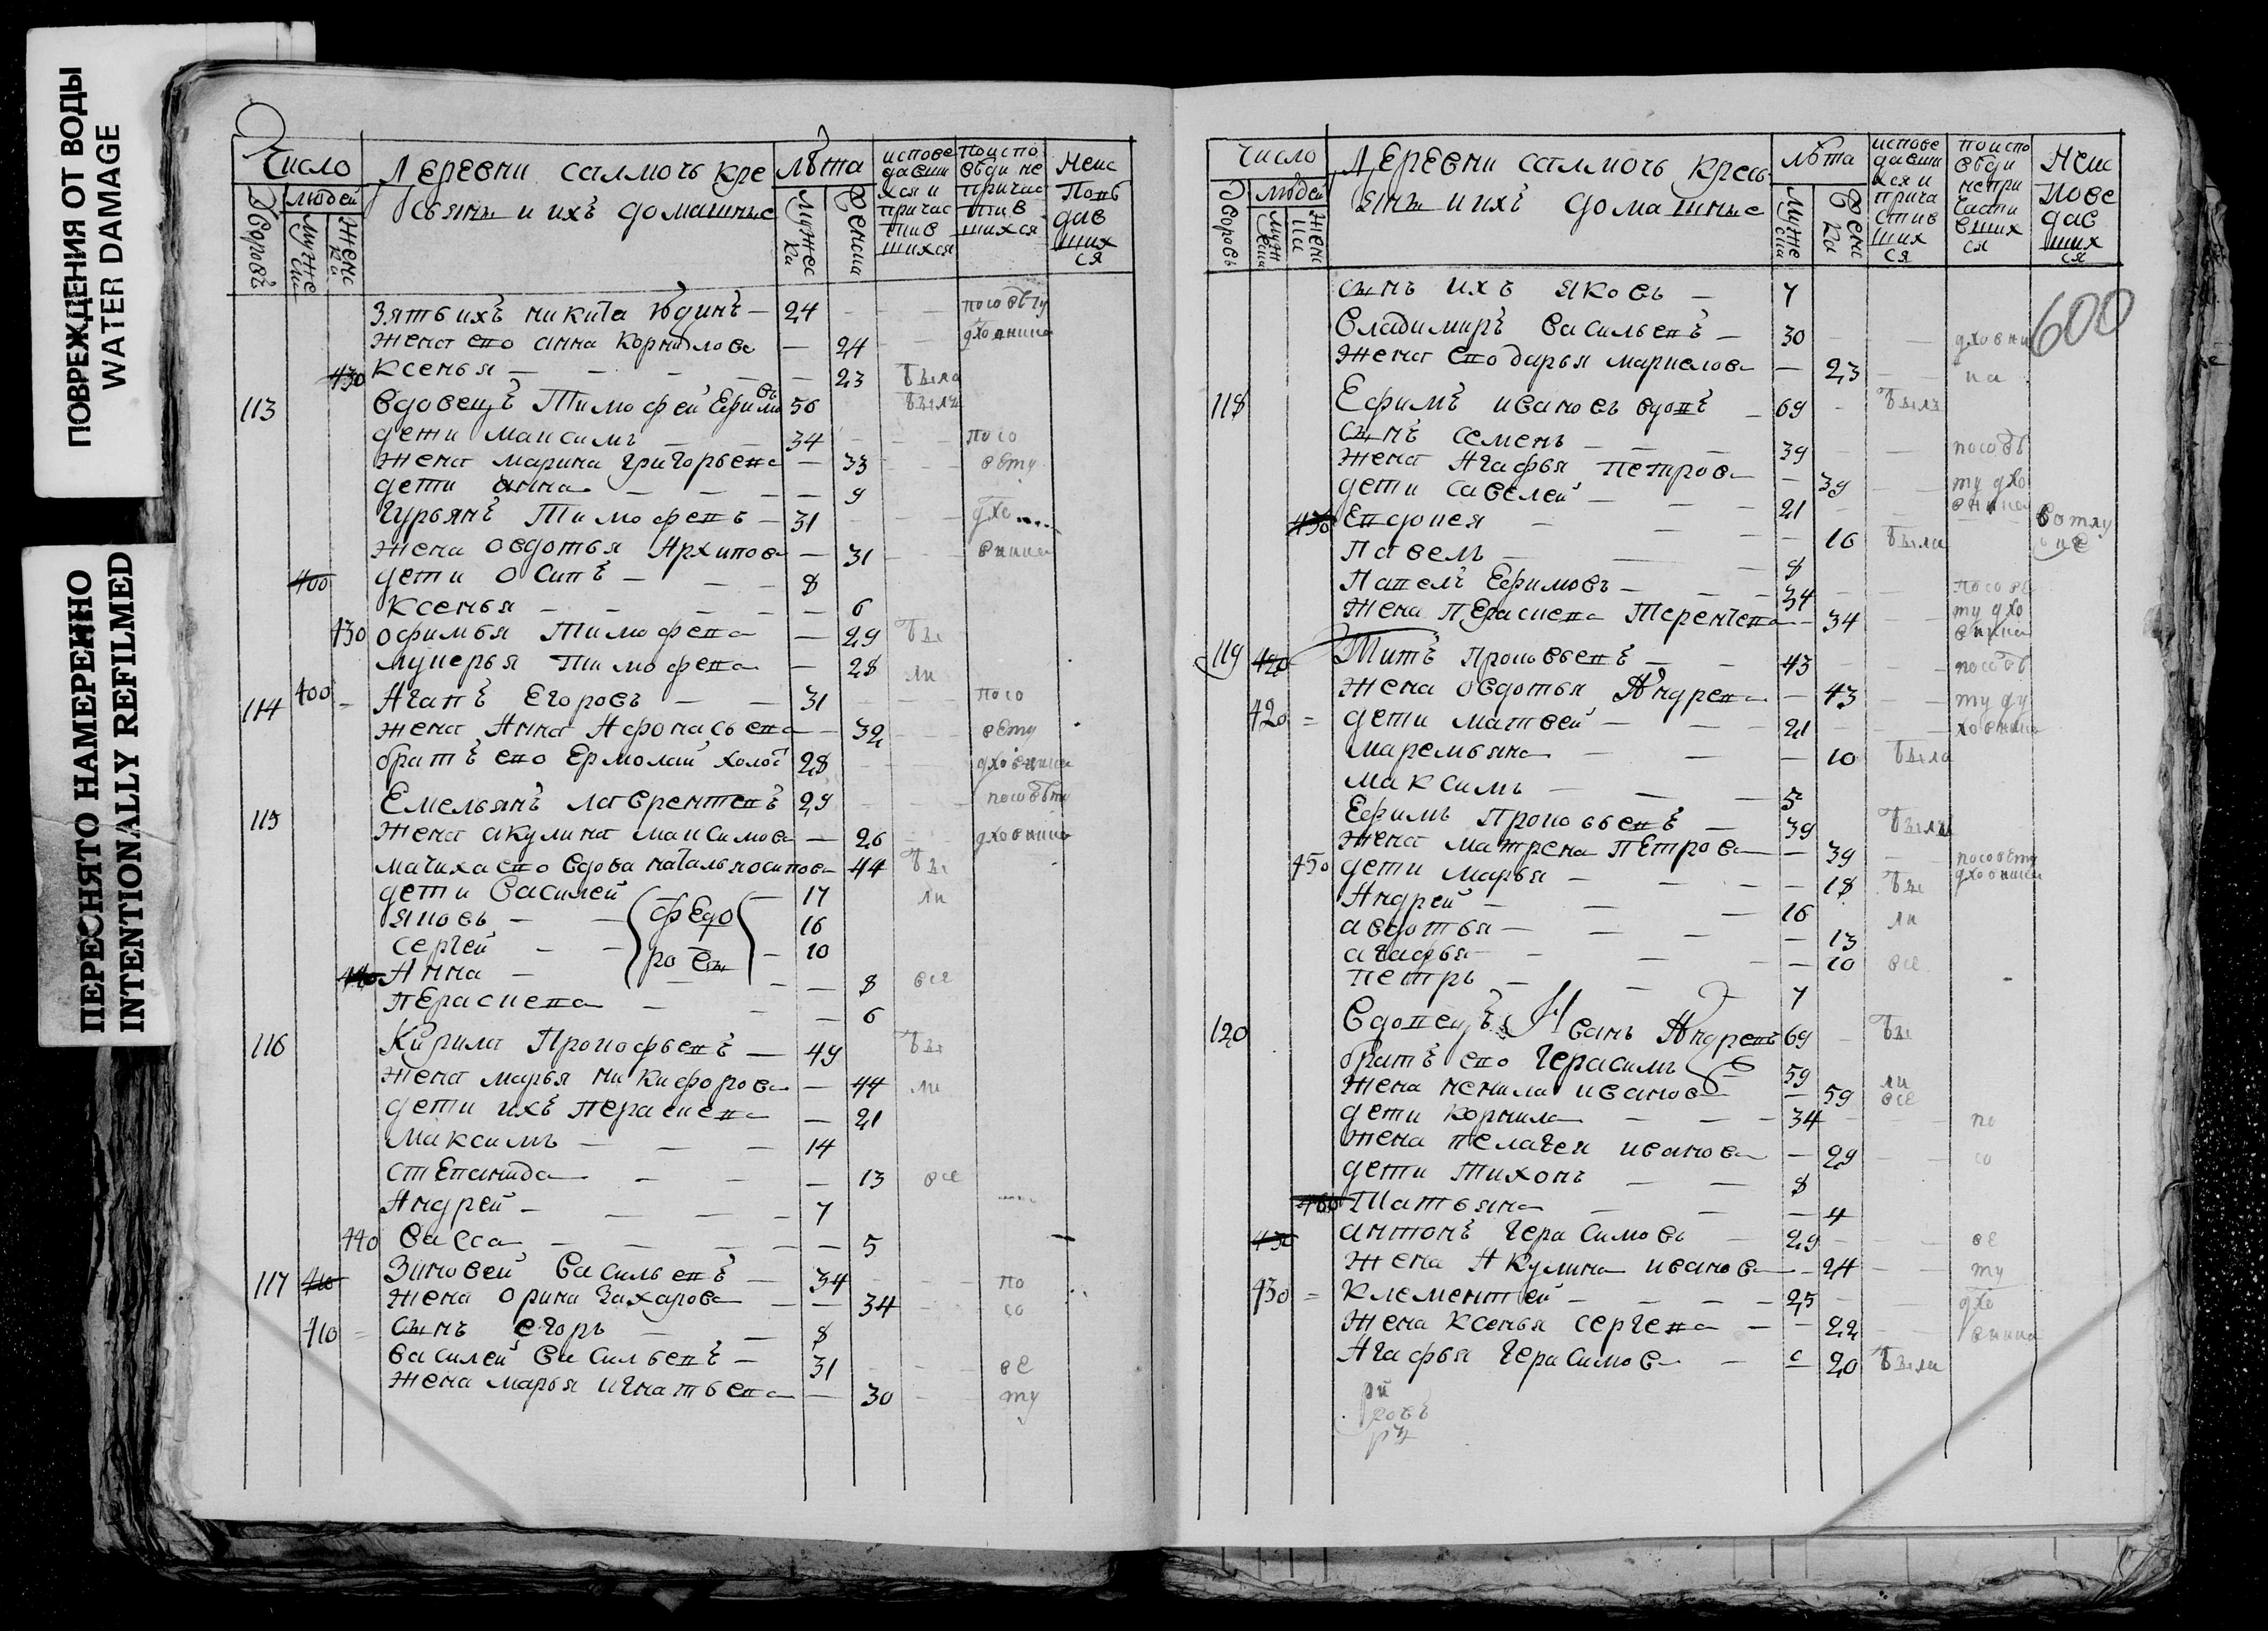 ПОВРЕЖДЕНИЯ ОТ ВОДЫ
WATER DAMAGE
ПЕРЕСНЯТО НАМЕРЕННО
INTENTIONALLY REFILMED
Число
Деревни салмочь кре
сьянѣ и ихъ домашные
лѣта
Дворовъ
людей
Мужеска
Женска
испове давши хся и причас тив шихся
поиспо вѣди не причас тив шихся
Неис повѣ дав ших ся
зять ихъ никита юдинъ — 24 посовѣту
жена ево анна корнилова — 24 дховника
430 ксенья — 23 была
113 вдовецъ Тимофей Ефимовъ 50 былъ
дети максимъ — 34 посо
жена марина григорьева — 33 вѣту
дети анна — 9
гурьянъ Тимофевъ — 31 дхо
жена овдотья Архипова — 31 вника
400 дети осипъ — 8
ксенья — 6
430 офимья Тимофева — 29 бы
лукерья тимофева — 28 ли
114 400 Агапъ Егоровъ — 31 посо
жена Анна Афонасьева — 32 вѣту
братъ ево Ермолай холос 28 дховника
115 Емельянъ лаврентевъ 29 посовѣту
жена акулина максимова — 26 дховника
мачиха ево вдова наталья осипова 44 бы
дети василей — 17 ли
яковъ — 16
сергей — 10
федо
ровы
Анна — 8 все
перасковья — 6
116 Кирила Прокофьевъ — 49 бы
жена марья никифорова — 44 ли
дети ихъ перасковья — 21
максимъ — 14
степанида — 13 все
Андрей — 7
440 васса — 5
117 410 Зиновей васильевъ — 34 по
жена орина захарова — 34 со
410 сынъ егоръ — 8
василей васильевъ — 31 вѣ
жена марья игнатьева — 30 ту
Число
Деревни салмочь кресь
янѣ и ихъ домашные
лѣта
Дворовъ
людей
испове давши хся и прича стив ших ся
поиспо вѣди непри части вших ся
Неис пове дав ших ся
600
сынъ ихъ яковъ — 7
владимиръ васильевъ — 30 дховни
жена ево дарья маркелова — 23 ка
118 Ефимъ ивановъ вдовъ — 69 былъ
сынъ семенъ — 39 посовѣ
жена Агафья петрова — 39 ту дхо
дети савелей — 21 вника вотлу
450 Евдокея — 16 были
павелъ — 8
павелъ Ефимовъ — 34 посовѣ
жена перасковья Терентева — 34 ту дхо вника
119 420 Титъ прокофьевъ — 43 посовѣ
жена овдотья Андрева — 43 ту ду
420 дети матвей — 21 ховника
маремьяна — 10 была
максимъ — 5
Ефимъ прокофьевъ — 39 былъ
жена матрена петрова — 39 посовѣту
450 дети марья — 18 бы дховника
Андрей — 16 ли
авдотья — 13
агафья — 10 все
петръ — 7
120 вдовецъ Иванъ Андревъ 69 бы
братъ ево герасимъ — 59 ли
жена ненила иванова — 59 все
дети корнила — 34 по
жена пелагея иванова — 29 со
дети тихонъ — 8
460 Татьяна — 4
430 антонъ герасимовъ — 29 вѣ
жена Акулина иванова — 24 ту
430 клементей — 25 дхо
жена ксенья сергева — 22 вника
Агафья герасимова — 20 были